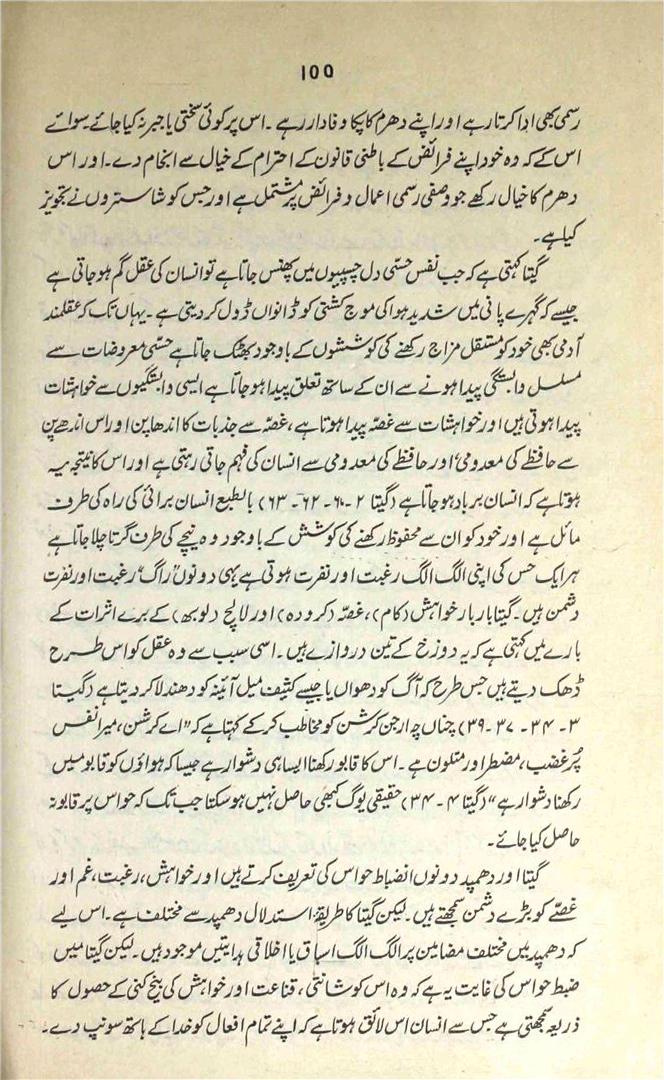 ۱۵۵
رسمی بھی ادا کرتا رہے اور اپنے دھرم کا پکا وفادار رہے ۔ اس پر کوئی سختی یا جبر نہ کیا جائے سوائے
اس کے کہ وہ خود اپنے فرائض کے باطنی قانون کے احترام کے خیال سے انجام دے ۔ اور اس
دھرم کا خیال رکھے جو وصفی رسمی اعمال و فرائض پر مشتمل ہے اور جس کو شاستروں نے تجویز
کیا ہے ۔
گیتا کہتی ہے کہ جب نفس حسّی دل چسپیوں میں پھنس جاتا ہے تو انسان کی عقل گم ہو جاتی ہے
جیسے کہ گہرے پانی میں شدید ہوا کی موج کشتی کو ڈانواں ڈول کر دیتی ہے ۔ یہاں تک کہ عقلمند
آدمی بھی خود کو مستقل مزاج رکھنے کی کوششوں کے باوجود بھٹک جاتا ہے حسّی معروضات سے
مسلسل وابستگی پیدا ہونے سے ان کے ساتھ تعلق پیدا ہو جاتا ہے ایسی وابستگیوں سے خواہشات
پیدا ہوتی ہیں اور خواہشات سے غصّہ پیدا ہوتا ہے ، غصّہ سے جذبات کا اندھا پن اور اس اندھے پن
سے حافظے کی معدومی ، اور حافظے کی معدومی سے انسان کی فہم جاتی رہتی ہے اور اس کا نتیجہ یہ
ہوتا ہے کہ انسان برباد ہو جاتا ہے (گیتا ۲ ۔ ۶۰ ۔ ۶۲ ۔ ۶۳) بالطبع انسان برائی کی راہ کی طرف
مائل ہے اور خود کو ان سے محفوظ رکھنے کی کوشش کے باوجود وہ نیچے کی طرف گرتا چلا جاتا ہے
ہر ایک حس کی اپنی الگ الگ رغبت اور نفرت ہوتی ہے یہی دونوں "راگ" رغبت اور نفرت
دشمن ہیں ۔ گیتا بار بار خواہش (کام) ، غصّہ (کرودہ) اور لالچ (لوبھ) کے برے اثرات کے
بارے میں کہتی ہے کہ یہ دوزخ کے تین دروازے ہیں ۔ اسی سبب سے وہ عقل کو اس طرح
ڈھک دیتے ہیں جس طرح کہ آگ کو دھواں یا جیسے کثیف میل آئینہ کو دھندلا کر دیتا ہے (گیتا
۳ ۔ ۳۴ ۔ ۳۷ ۔ ۳۹) چناں چہ ارجن کرشن کو مخاطب کر کے کہتا ہے کہ "اے کرشن ، میرا نفس
پُر غضب ، مضطر اور متلون ہے ۔ اس کا قابو رکھنا ایسا ہی دشوار ہے جیسا کہ ہواؤں کو قابو میں
رکھنا دشوار ہے" (گیتا ۴ ۔ ۳۴) حقیقی یوگ کبھی حاصل نہیں ہو سکتا جب تک کہ حواس پر قابو نہ
حاصل کیا جائے ۔
گیتا اور دھمپد دونوں انضباط حواس کی تعریف کرتے ہیں اور خواہش ، رغبت ، غم اور
غصے کو بڑے دشمن سمجھتے ہیں ۔ لیکن گیتا کا طریقۂ استدلال دھمپد سے مختلف ہے ۔ اس لیے
کہ دھمپد میں مختلف مضامین پر الگ الگ اسباق یا اخلاقی ہدایتیں موجود ہیں ۔ لیکن گیتا میں
ضبط حواس کی غایت یہ ہے کہ وہ اس کو شانتی ، قناعت اور خواہش کی بیخ کنی کے حصول کا
ذریعہ سمجھتی ہے جس سے انسان اس لائق ہوتا ہے کہ اپنے تمام افعال کو خدا کے ہاتھ سونپ دے ۔